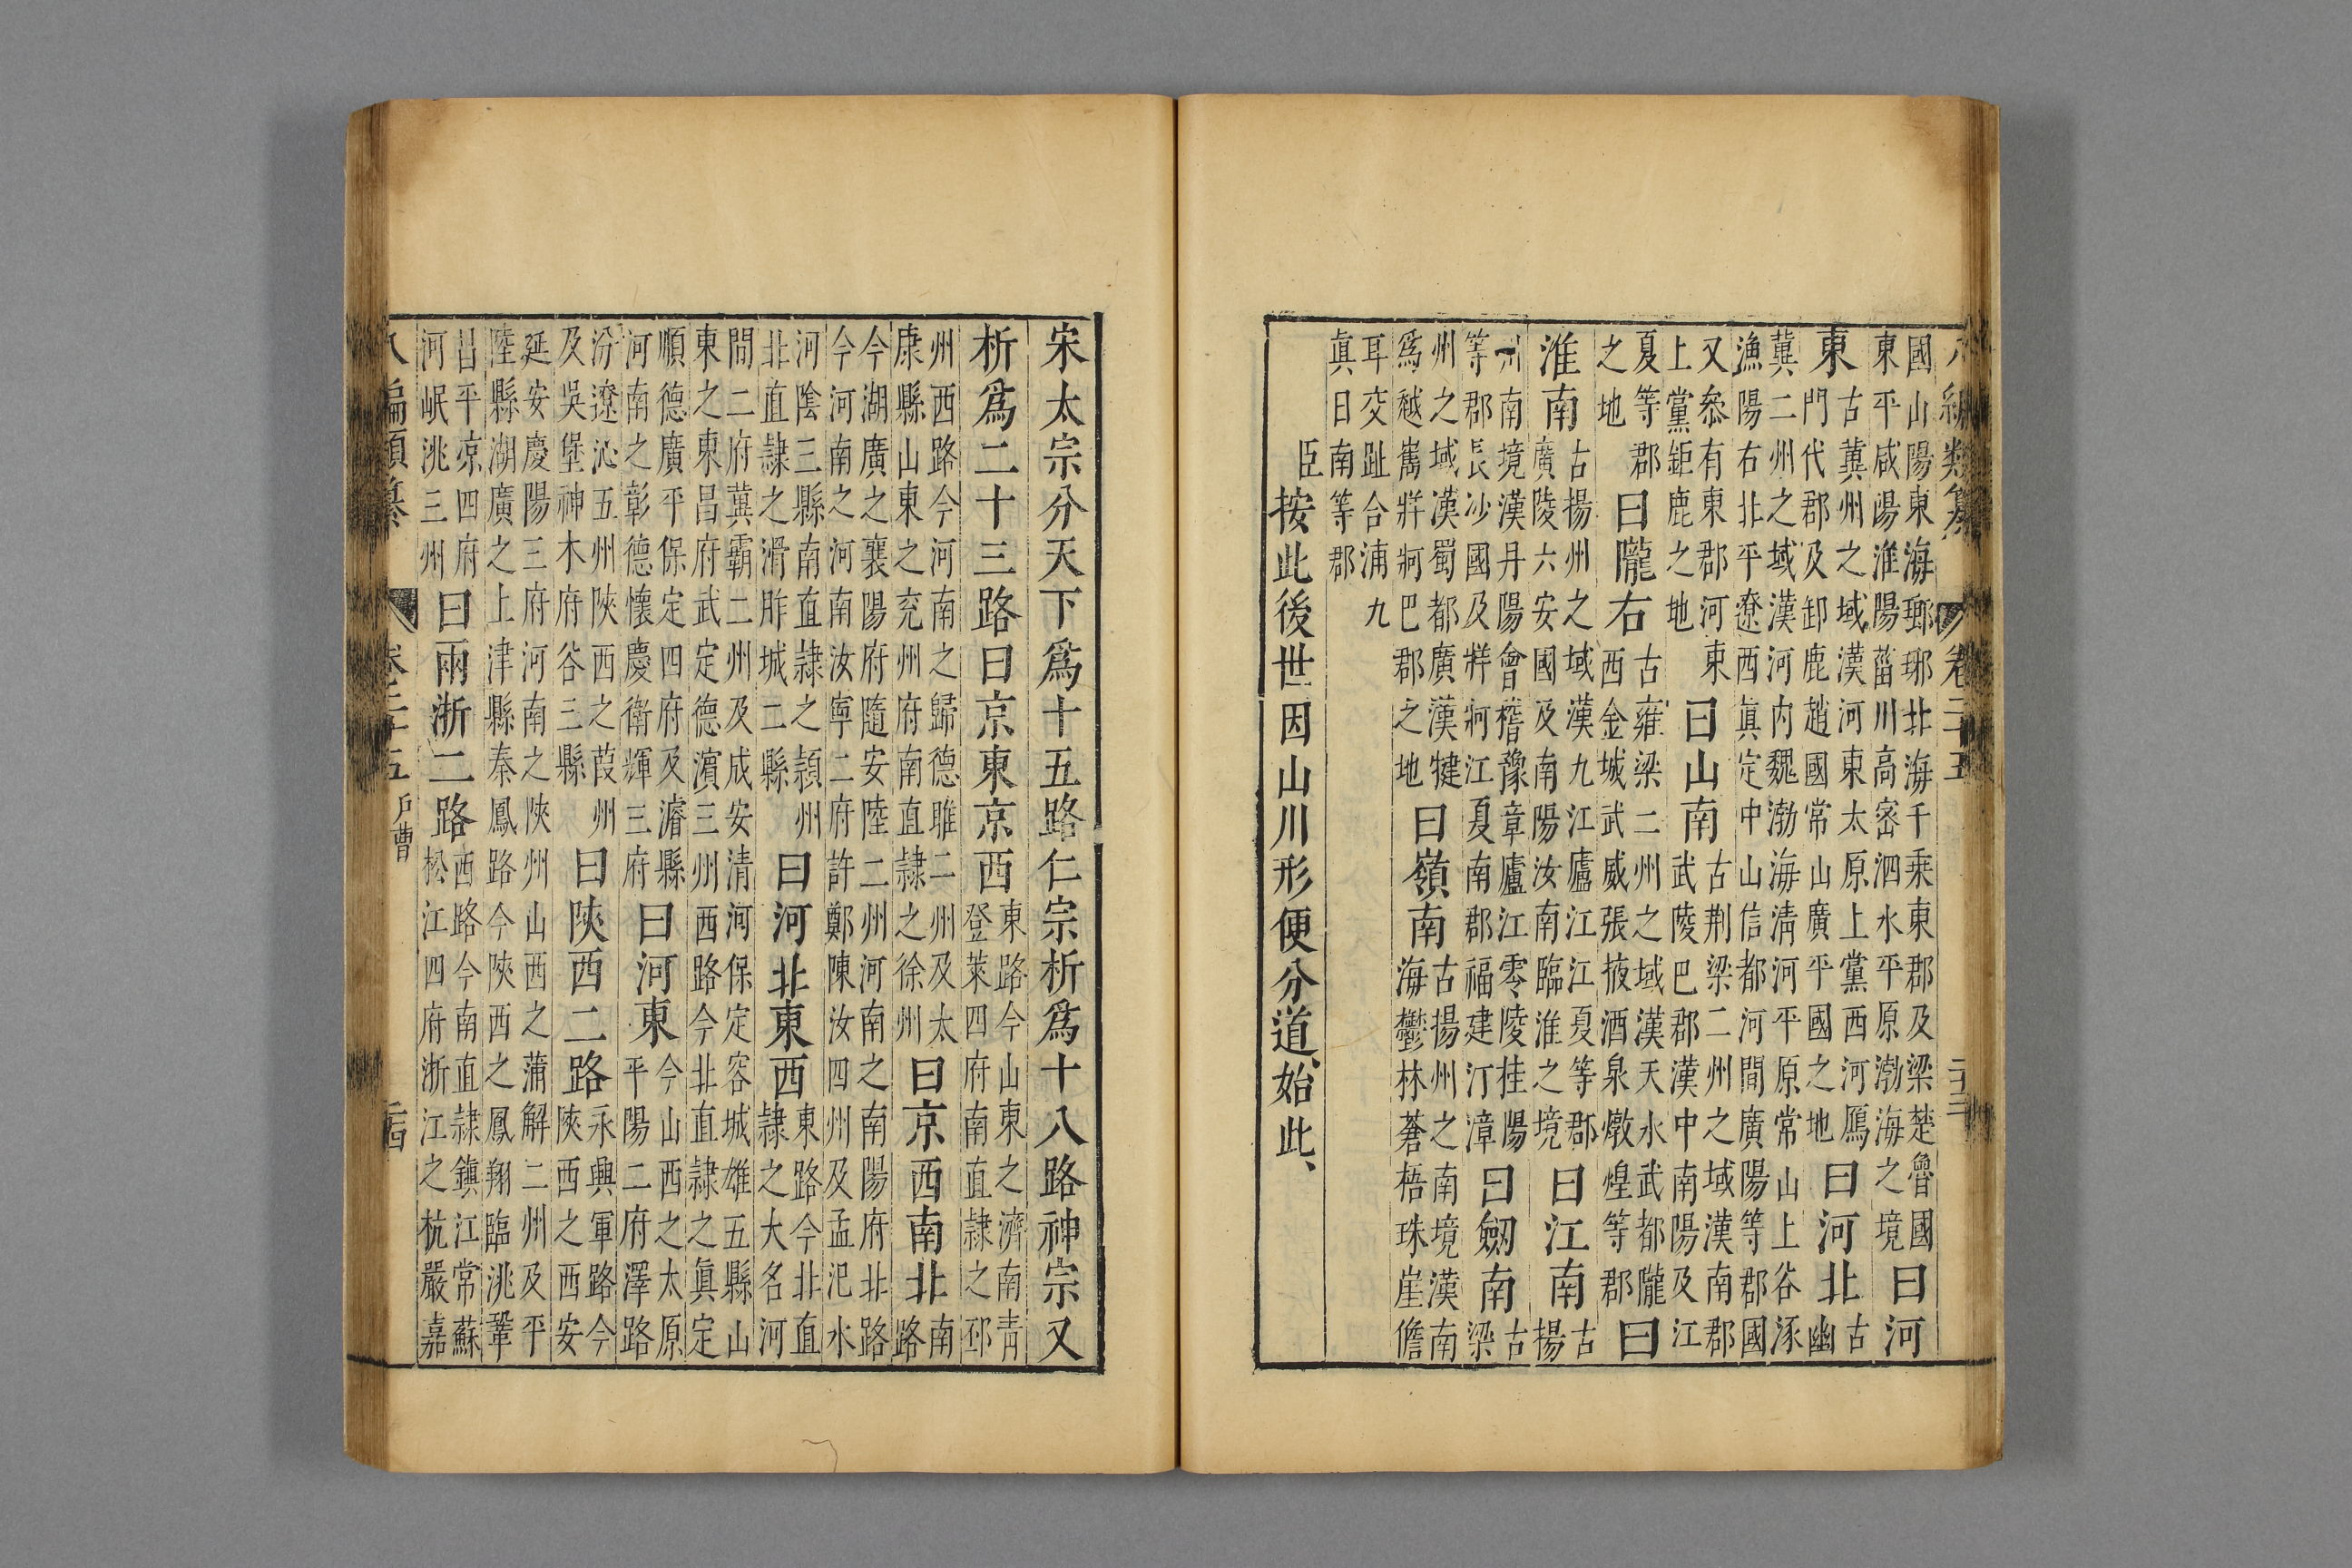 八編類纂 卷二十五 二十三
國山陽東海瑯琊北海千乘東郡及梁楚魯國
東平咸陽淮陽菑川高密泗水平原渤海之境
曰河
東
古冀州之域漢河東太原上黨西河鴈
門代郡及卸鹿趙國常山廣平國之地
曰河北
古
幽
冀二州之域漢河内魏渤海清河平原常山上谷涿
漁陽右北平遼西眞定中山信都河間廣陽等郡國
又叅有東郡河東
上黨鉅鹿之地
曰山南
古荆梁二州之域漢南郡
武陵巴郡漢中南陽及江
夏等郡
之地
曰隴右
古雍梁二州之域漢天水武都隴
西金城武威張掖酒泉燉煌等郡
曰
淮南
古揚州之域漢九江廬江江夏等郡
廣陵六安國及南陽汝南臨淮之境
曰江南
古
揚
州南境漢丹陽會稽豫章廬江零陵桂陽
等郡長沙國及牂牁江夏南郡福建汀漳
曰劔南
古
梁
州之域漢蜀都廣漢犍
爲越嶲牂牁巴郡之地
曰嶺南
古揚州之南境漢南
海鬱林蒼梧珠崖儋
耳交趾合浦九
眞日南等郡
臣按此後世因山川形便分道、始此、
宋太宗分天下爲十五路仁宗析爲十八路神宗又
析爲二十三路曰京東京西
東路今山東之濟南青
登萊四府南直隷之邳
州西路今河南之歸德睢二州及太
康縣山東之兖州府南直隷之徐州
曰京西南北
南
路
今湖廣之襄陽府隨安陸二州河南之南陽府北路
今河南之河南汝寧二府許鄭陳汝四州及孟汜水
河陰三縣南直隷之潁州
北直隷之滑胙城二縣
曰河北東西
東路今北直
隷之大名河
間二府冀霸二州及成安清河保定容城雄五縣山
東之東昌府武定德濱三州西路今北直隷之眞定
順德廣平保定四府及濬縣
河南之彰德懷慶衛輝三府
曰河東
今山西之太原
平陽二府澤路
汾遼沁五州陜西之葭州
及吳堡神木府谷三縣
曰陜西二路
永興軍路今
陜西之西安
延安慶陽三府河南之陜州山西之蒲解二州及平
陸縣湖廣之上津縣秦鳳路今陜西之鳳翔臨洮鞏
昌平凉四府
河岷洮三州
曰兩浙二路
西路今南直隷鎮江常蘇
松江四府浙江之杭嚴嘉
八編類纂 卷二十五 戶曹 二十四